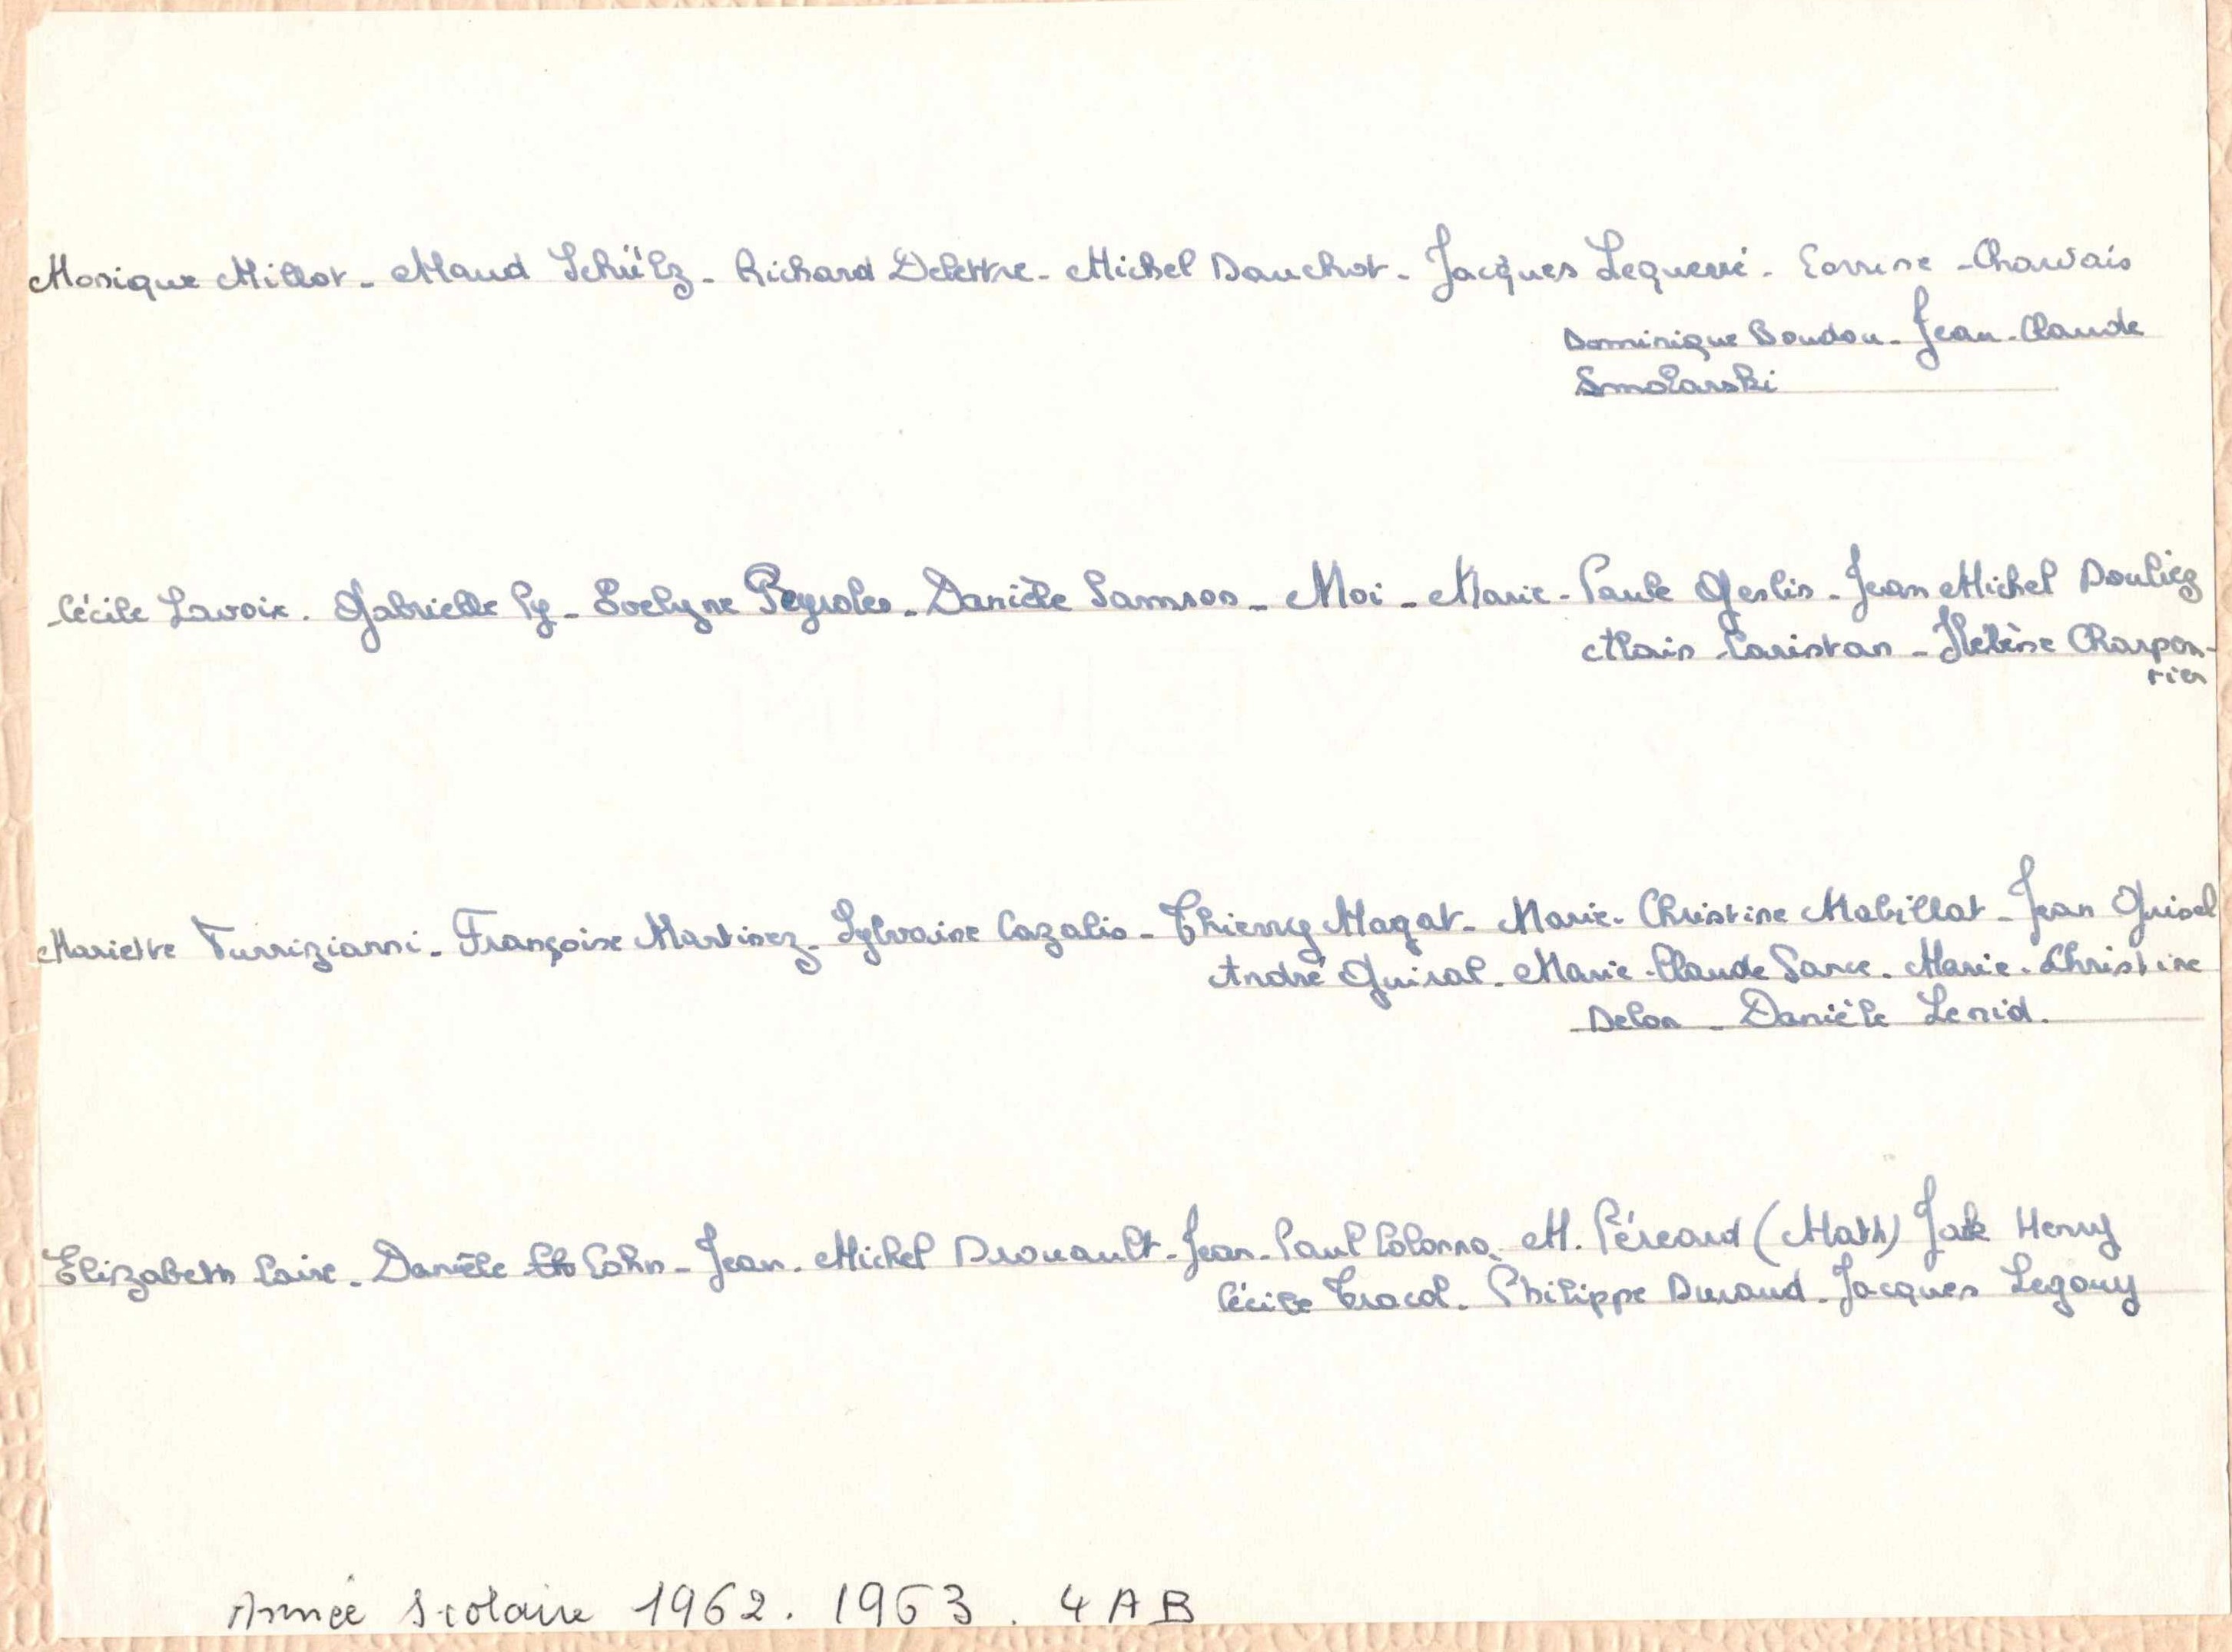 Monique Millot - Maud Schülz - Richard Delettre - Michel Dauchot - Jacques Lequerré - Corinne Charvais
Dominique Boudou - Jean-Claude
Smolarski
Cécile Lavoix. Gabrielle Py - Evelyne Peyroles - Danièle Samson - Moi - Marie-Paule Geslin - Jean Michel Douliez
Alain Caristan - Hélène Charpen-
tier
Mariette Turrizianni - Françoise Martinez - Sylvaine Cazalis - Thierry Magat - Marie-Christine Mabillat - Jean Guisel
André Guiral - Marie-Claude Sance - Marie-Christine
Delon - Danièle Lenid.
Elizabeth Caire - Danièle Cohn - Jean-Michel Drouault - Jean-Paul Colonna - M. Péreard (Math) Jack Henry
Cécile Tracol - Philippe Durand - Jacques Legouy
Année Scolaire 1962. 1963. 4AB